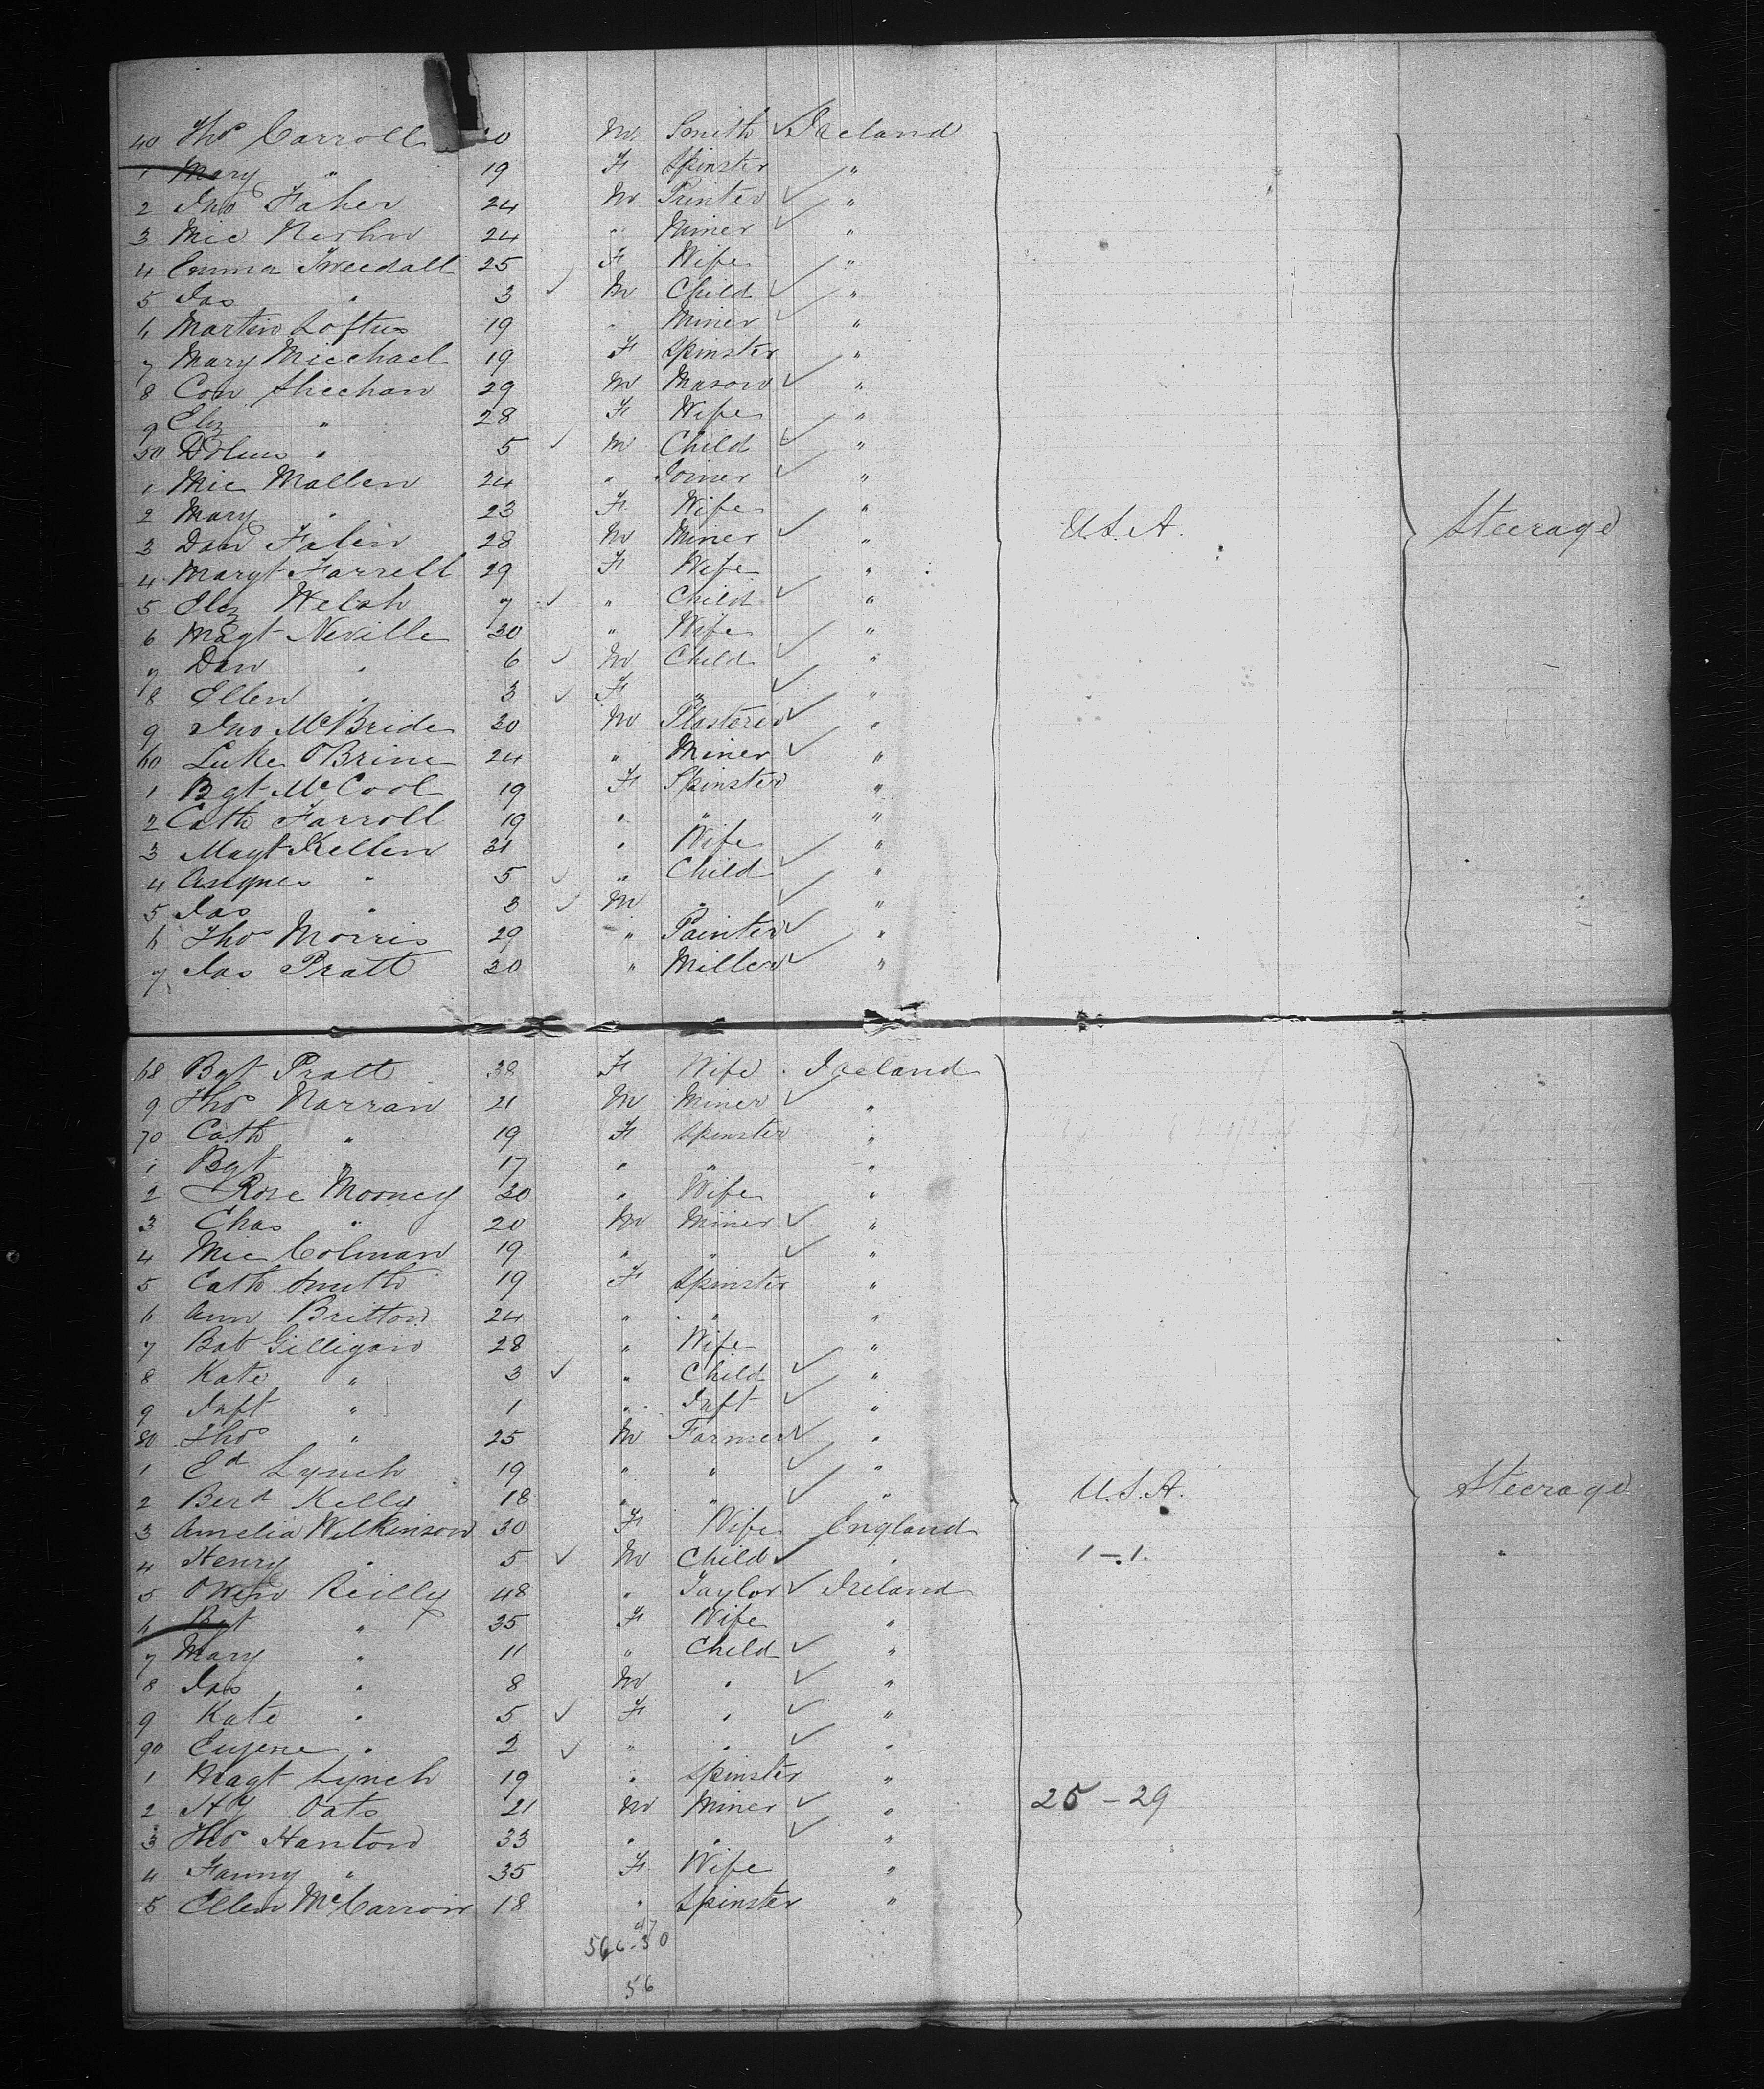 40 Thos Carroll 0 M Smith ✓ Ireland
1 Mary " 19 F Spinster "
2 Jno Faher 24 M Printer ✓ "
3 Mic 24 " Miner ✓ "
4 Emma Tweedall 25 F Wife "
5 Jas " 3 ✓ M Child ✓ "
6 Martin Loftus 19 " Miner ✓ "
7 Mary Miechael 19 F Spinster "
8 Con Sheehan 29 M Mason ✓ "
9 Eliz " 28 F Wife "
50 " 5 ✓ M Child ✓ "
1 Mic Mallen 24 " Joiner ✓ "
2 Mary " 23 F Wife "
3 Dan 28 M Miner ✓ " U.S.A. Steerage
4 Margt Farrell 29 F Wife "
5 Eliz Welsh 7 ✓ " Child ✓ "
6 Magt Neville 30 " Wife "
7 Dan " 6 ✓ M Child ✓ "
8 Ellen " 3 ✓ F " ✓ "
9 Jno McBride 30 M Plasterer ✓ "
60 Luke OBrine 24 " Miner ✓ "
1 Bgt McCool 19 F Spinster "
2 Cath Farroll 19 " " "
3 Magt Kellen 31 " Wife "
4 Angnes " 5 ✓ " Child ✓ "
5 Jas " 3 ✓ M " ✓ "
6 Thos Morris 29 " Painter ✓ "
7 Jas Pratt 30 " Miller ✓ "
68 Bgt Pratt 38 F Wife Ireland
9 Thos Narran 21 M Miner ✓ "
70 Cath " 19 F Spinster "
1 Bgt " 17 " " "
2 Rose Mooney 30 " Wife "
3 Chas " 20 M Miner ✓ "
4 Mic Colman 19 " " ✓ "
5 Cath Smith 19 F Spinster "
6 Ann Britton 24 " " "
7 Bat Gilligan 28 " Wife "
8 Kate " 3 ✓ " Child ✓ "
9 Inft " 1 " Inft ✓ "
80 Thos " 25 M Farmer ✓ "
1 Ed Lynch 19 " " ✓ "
2 Berd Kelly 18 " " ✓ " U.S.A. Steerage
3 Amelia Wilkinson 30 F Wife England
4 Henry " 5 ✓ M Child ✓ " 1 - 1. "
5 Owen Reilly 48 " Taylor ✓ Ireland
6 Bgt " 35 F Wife "
7 Mary " 11 " Child ✓ "
8 Jas " 8 M " ✓ "
9 Kate " 5 ✓ F " ✓ "
90 Eugene " 2 ✓ " " ✓ "
1 Magt Lynch 19 " Spinster "
2 Hy Oats 21 M Miner ✓ " 25 - 29
3 Thos Hanton 33 " " ✓ "
4 Fanny " 35 F Wife "
5 Ellen McCarron 18 " Spinster "
56